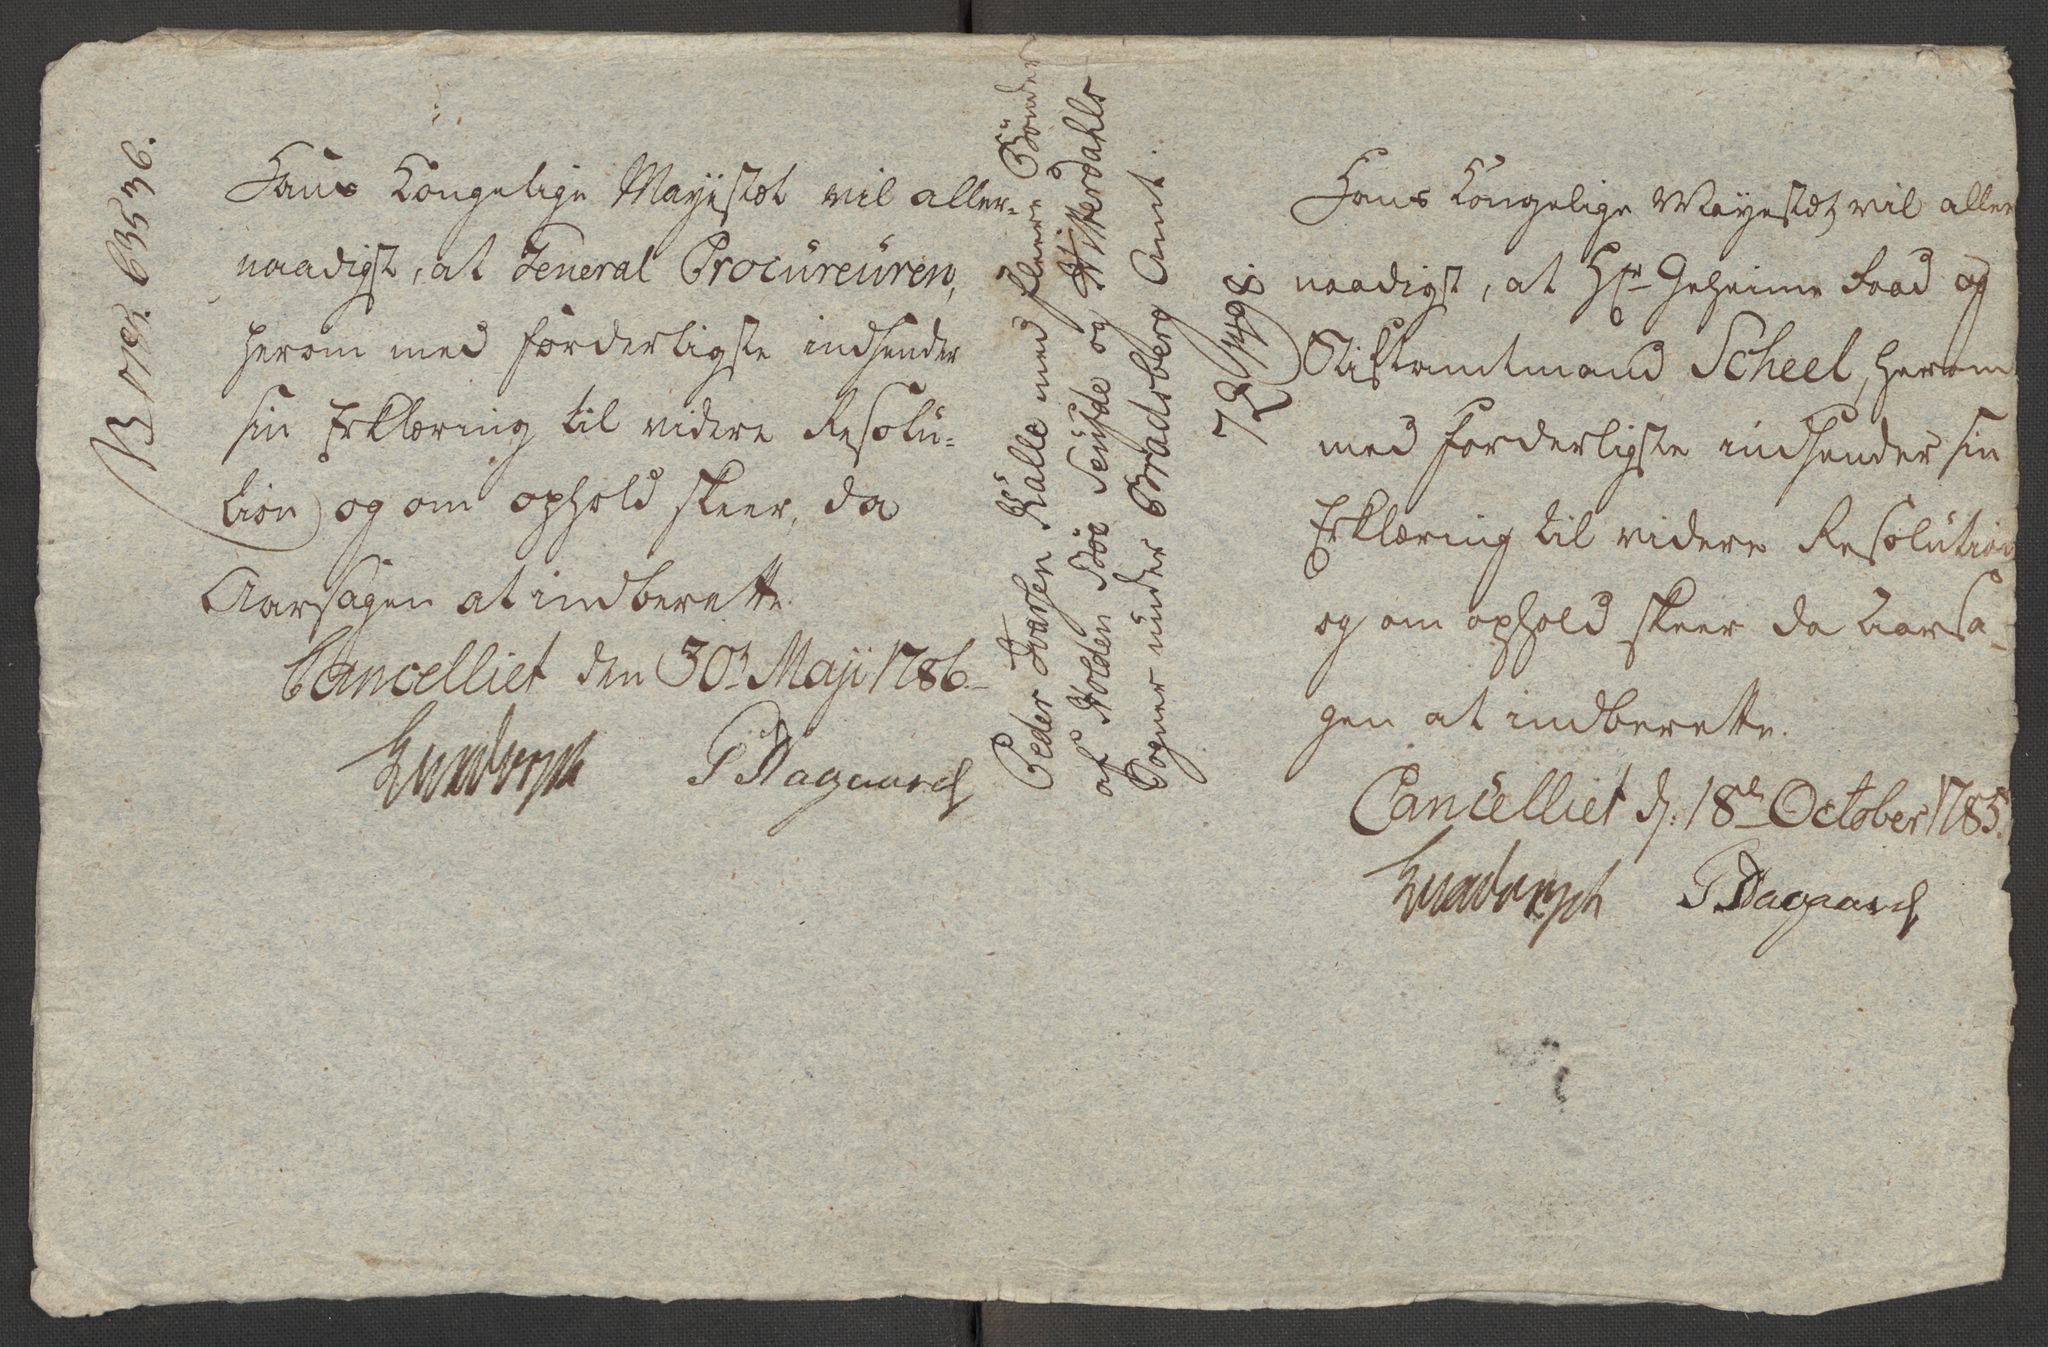 Hans Kongelige Mayestæt vil aller-
naadigst, at General Procureuren,
herom med forderligste indsender
sin Erklæring til videre Resolu-
tion og om ophold skeer, da
Aarsagen at indberette.
Cancelliet den 30t Maji 1786.
Luxdorph P Aagaard
Peder Iversen Kalle med fleere Bönder
af Holden Söe Seufde og Hitterdahls
Sogner under Bradsberg Amt.
Hans Kongelige Mayestæt vil aller
naadigst, at Hr Geheime Raad og
Stiftamtmand Scheel, herom
med forderligste indsender sin
Erklæring til videre Resolution
og om ophold skeer da Aarsa-
gen at indberette.
Cancelliet d. 18de October 1785.
Luxdorph P Aagaard